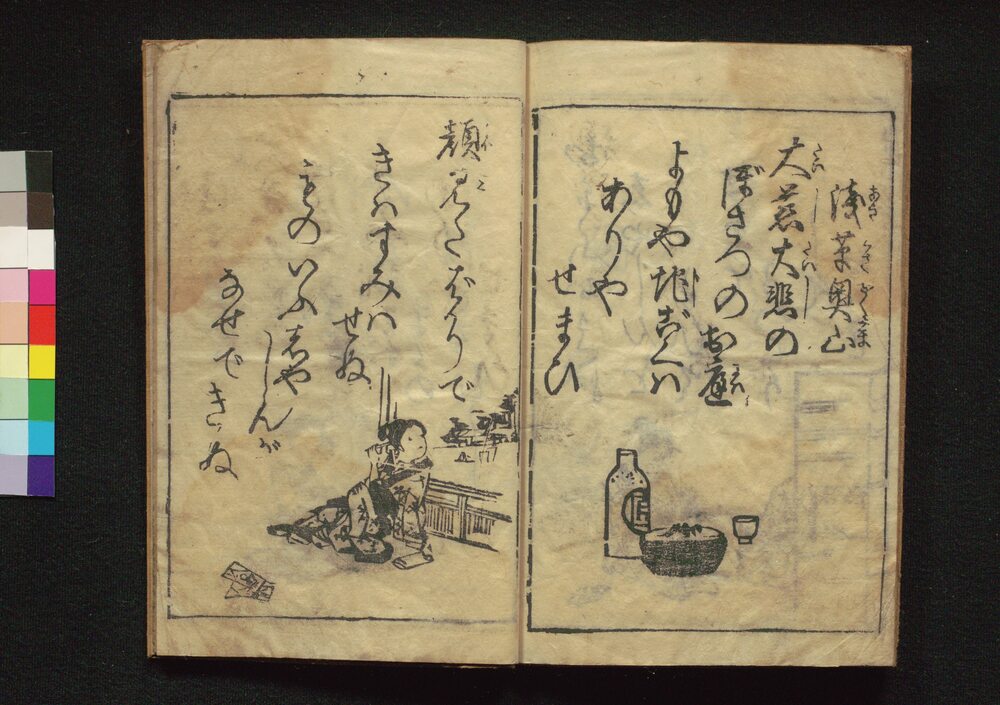 浅草奥山
大慈大悲の
ぼさつのお庭
よもや地ごくハ
ありや
せまひ
顔見たばかりで
きハすみハ
せぬ
ものいふ志や
しんが
なせできぬ